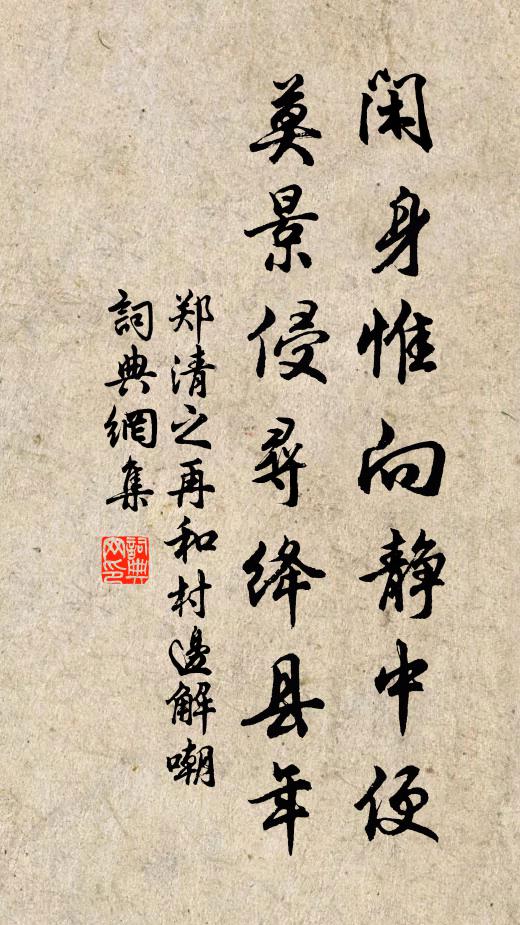 闲身惟向静中便
莫景侵寻绛县年
郑清之再和村邊解嘲
詞典網集
詞典网印